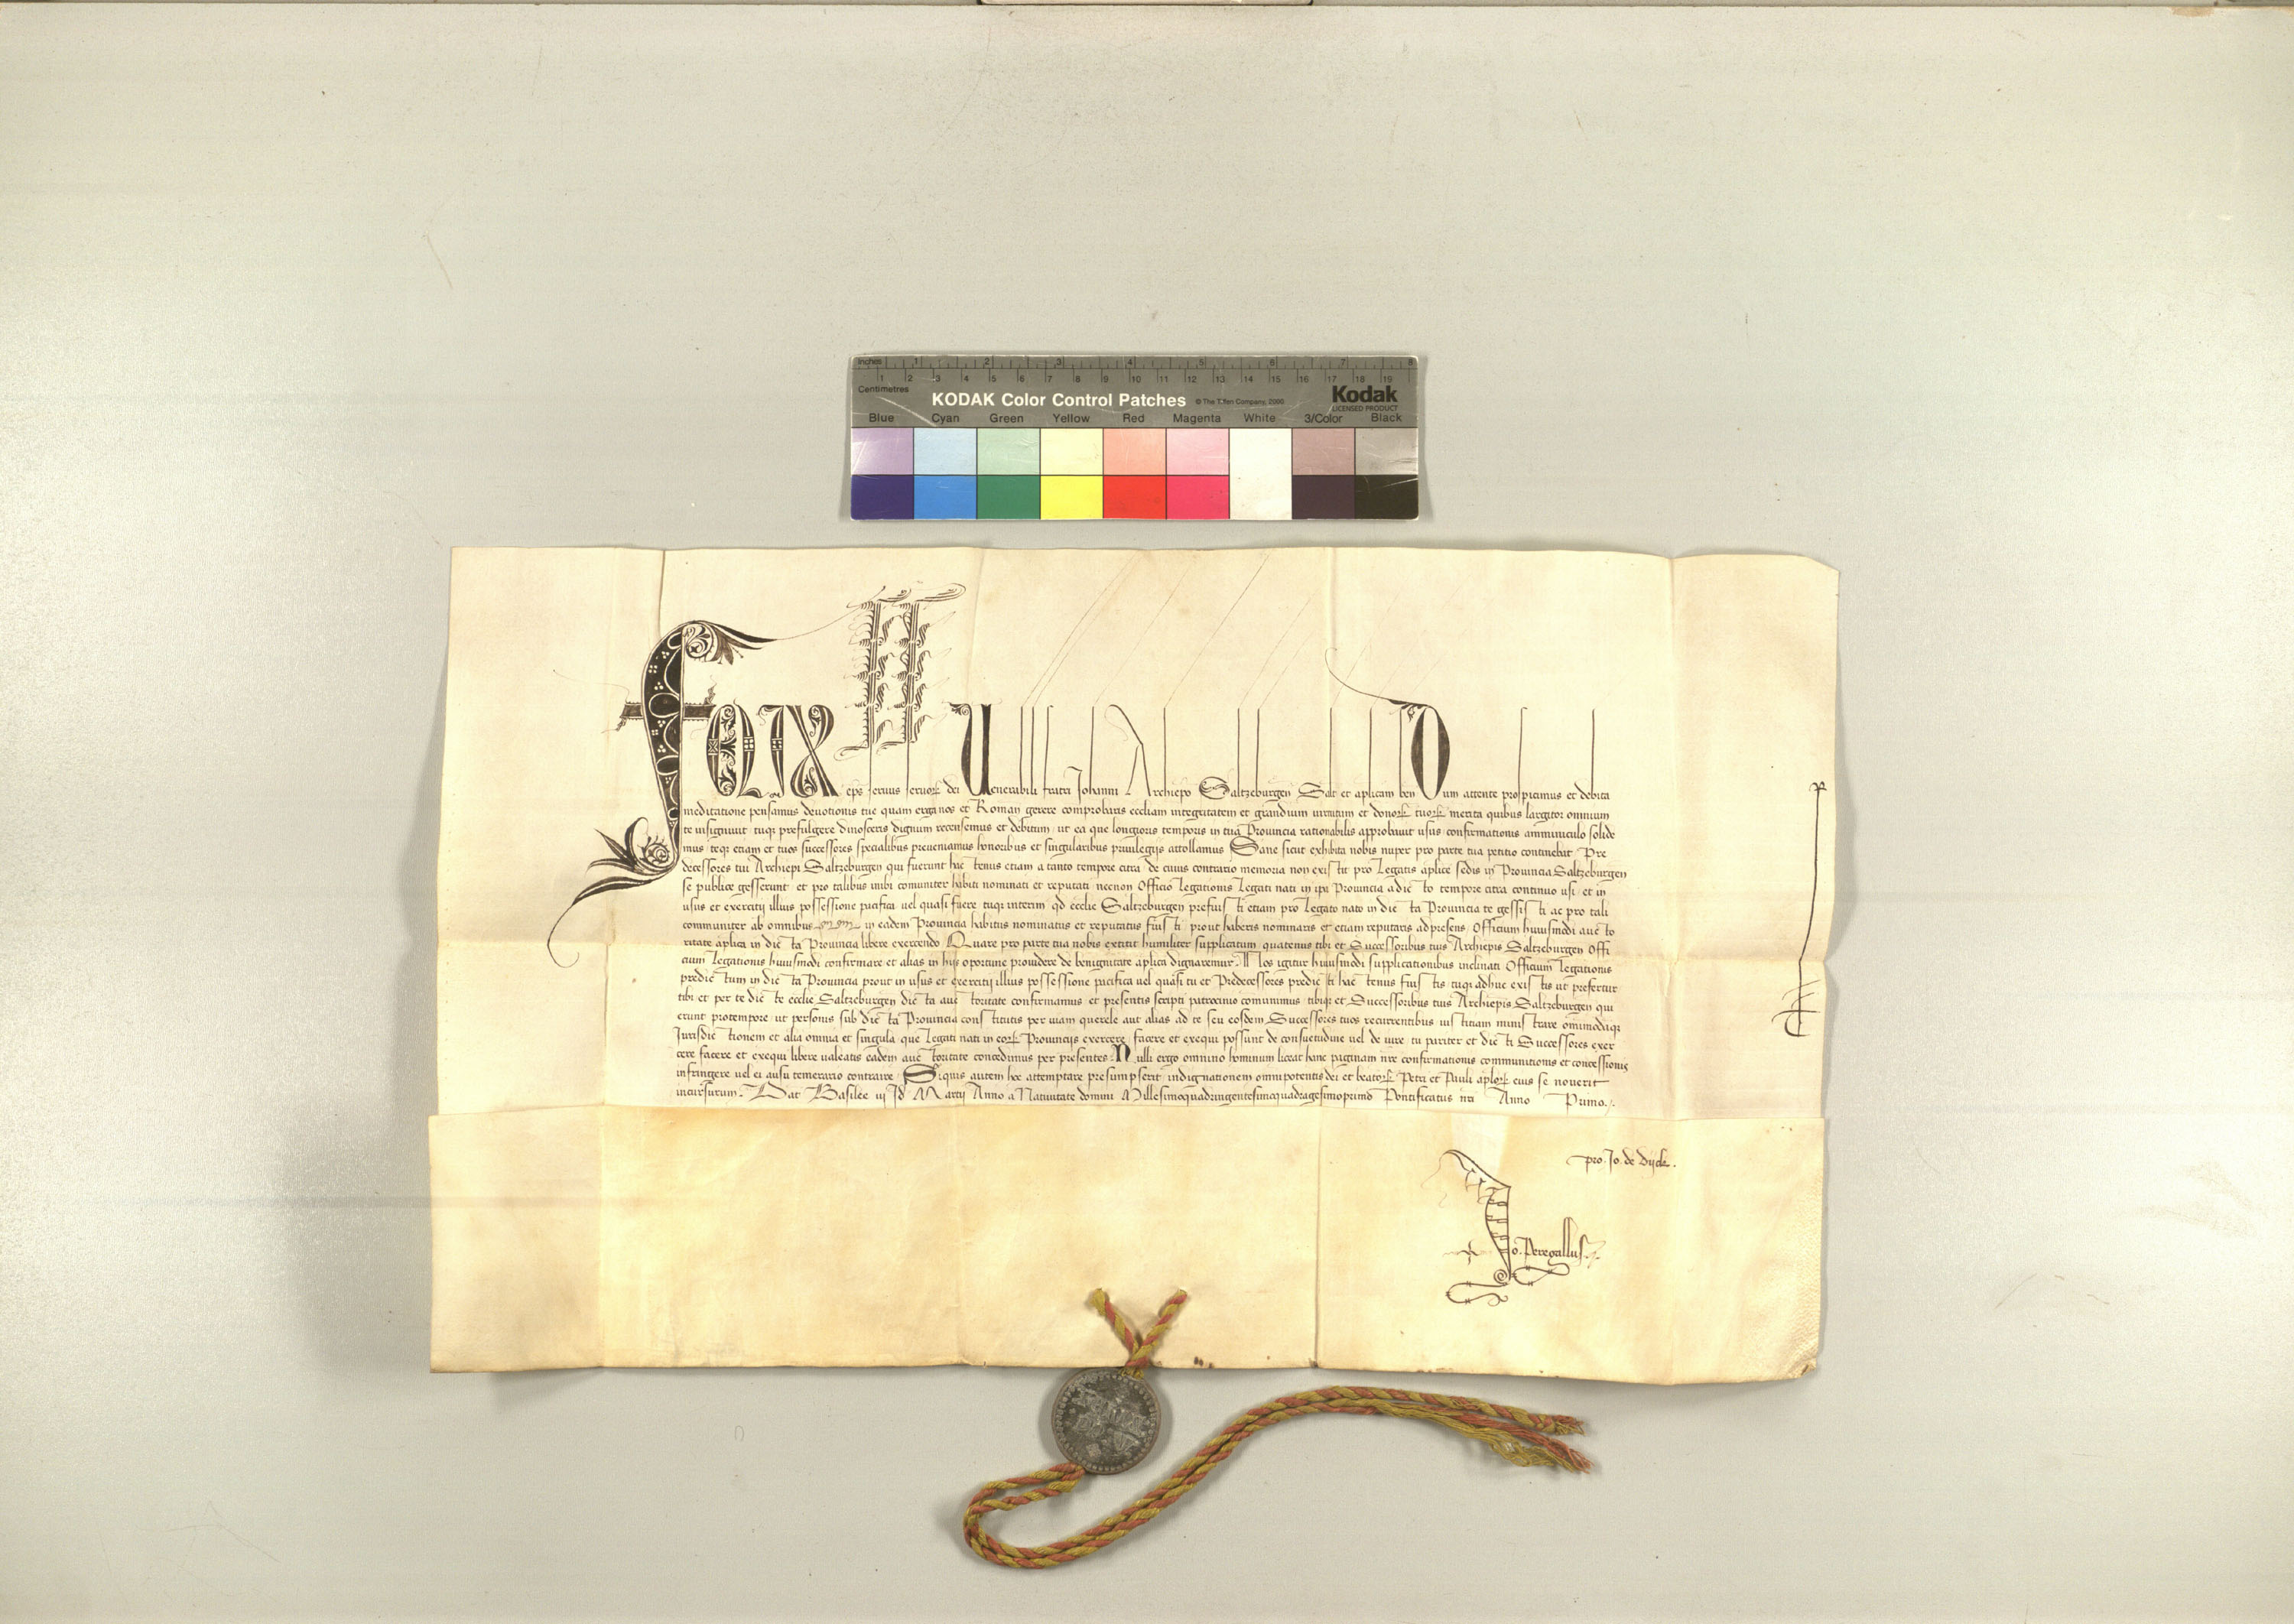 Inches 1 2 3 4 5 6 7 8
1 2 3 4 5 6 7 8 9 10 11 12 13 14 15 16 17 18 19
Centimetres
KODAK Color Control Patches © The Tiffen Company, 2000 Kodak
LICENSED PRODUCT
Blue Cyan Green Yellow Red Magenta White 3/Color Black
Felix eps seruus seruor dei Uenerabili fratri Johanni Archiepo Saltzeburgen Salt et aplicam ben Dum attente prospicimus et debita
meditatione pensamus deuotionis tue quam erga nos et Roman gerere comprobaris eccliam integritatem et grandium uirtutum et donor tuor merita quibus largitor omnium
te insigniuit tuqz prefulgere dinosceris dignum recensemus et debitum ut ea que longioris temporis in tua Prouincia rationabilis approbauit usus confirmationis amminiculo solide
mus teqz etiam et tuos successores specialibus preueniamus honoribus et singularibus priuilegijs attollamus Sane sicut exhibita nobis nuper pro parte tua petitio continebat Pre
decessores tui Archiepi Saltzeburgen qui fuerunt hactenus etiam a tanto tempore citra de cuius contrario memoria non existit pro Legatis aplice sedis in Prouincia Saltzeburgen
se publice gesserunt et pro talibus inibi comuniter habiti nominati et reputati necnon Officio Legationis Legati nati in ipa Prouincia a dicto tempore citra continuo usi et in
usus et exercitij illius possessione pacifica uel quasi fuere tuqz interim qd ecclie Saltzeburgen prefuisti etiam pro Legato nato in dicta Prouincia te gessisti ac pro tali
communiter ab omnibus in eadem Prouincia habitus nominatus et reputatus fuisti prout haberis nominaris et etiam reputaris ad presens Officium huiusmodi aucto
ritate aplica in dicta Prouincia libere exercendo Quare pro parte tua nobis extitit humiliter supplicatum quatenus tibi et Successoribus tuis Archiepis Saltzeburgen Offi
cium Legationis huiusmodi confirmare et alias in hijs oportune prouidere de benignitate aplica dignaremur Nos igitur huiusmodi supplicationibus inclinati Officium Legationis
predictum in dicta Prouincia prout in usus et exercitij illius possessione pacifica uel quasi tu et Predecessores predicti hactenus fuistis tuqz adhuc existis ut prefertur
tibi et per te dicte ecclie Saltzeburgen dicta auctoritate confirmamus et presentis scripti patrocinio comunimus tibiqz et Successoribus tuis Archiepis Saltzeburgen qui
erunt protempore ut personis sub dicta Prouincia constitutis per uiam querele aut alias ad te seu eosdem Successores tuos recurrentibus iustitiam ministrare omnimodaqz
Jurisdictionem et alia omnia et singula que Legati nati in eor Prouincijs exercere facere et exequi possunt de consuetudine uel de iure tu pariter et dicti Successores exer
cere facere et exequi libere ualeatis eadem auctoritate concedimus per presentes Nulli ergo omnino hominum liceat hanc paginam nre confirmationis communitionis et concessionis
infringere uel ei ausu temerario contraire Siquis autem hoc attemptare presumpserit indignationem omnipotentis dei et beator Petri et Pauli aplor eius se nouerit
incursurum. Dat Basilee iij Id Martij Anno a Natiuitate domini Millesimoquadringentesimoquadragesimoprimo Pontificatus nri Anno Primo.
pro Jo. de Dyck.
Jo. Peregallus